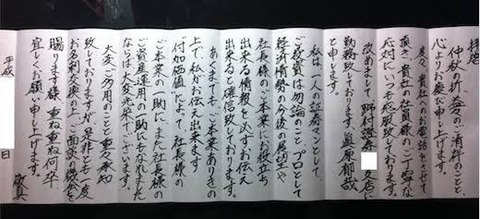 拝啓
仲秋の折、益々のご清祥のことと、
心よりお慶び申し上げます。
度々、貴社へのお電話をさせて
頂き、貴社の社員様のご丁寧な
応対にいつも感服致しております。
改めまして、野村證券 支店に
勤務致しております眞原郁哉
と申します。
私は、一人の証券マンとして
ご投資は勿論のこと、プロとして
経済情勢の今後の展望や、
社長様のご本業にお役立ち
出来る情報を必ずお伝え
出来ると確信致しております。
あくまでも、ご本業ありきの
上で私がお伝え出来ます
「付加価値」によって、社長様の
ご本業の一助に、また社長様の
ご資産運用の一助にもなれました
ならば大変光栄でございます。
大変ご多忙のことと重々承知
致しておりますが、是非とも一度
お名刺交換の上、ご面談の機会を
賜ります様、重ね重ね何卒
宜しくお願い申し上げます。
敬具
平成 日